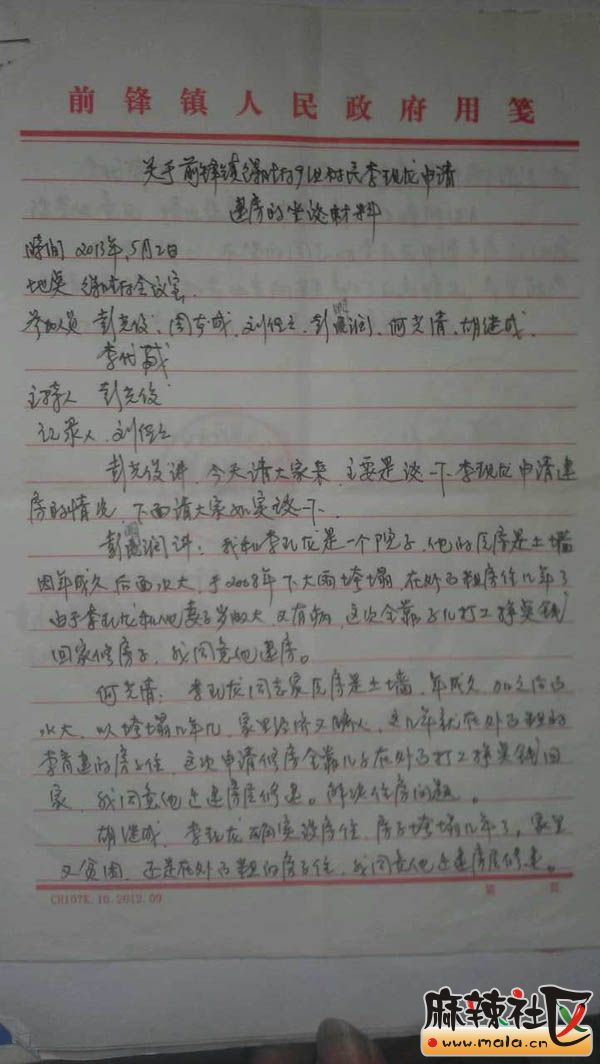 前锋镇人民政府用笺
关于前锋镇 村9组村民李现龙申请
建房的座谈材料
时间 2013年5月2日
地点 村会议室
参加人员 彭光俊、周 成、刘 、彭 润、何光清、胡继成、
李代
主持人 彭光俊
记录人 刘
彭光俊讲,今天请大家来,主要是谈一下李现龙申请建
房的情况,下面请大家如实谈一下。
彭 润讲:我和李现龙是一个院子,他的民房是土墙
因年成久后面水大,于2008年下大雨垮塌,在外面租房住几年了
由于李现龙和他妻子岁数大又有病,这次全靠儿子打工挣点钱
回家修房子,我同意他建房。
何光清:李现龙同志家民房是土墙,年成久,加之后面
水大,以垮塌几年了,家里经济又 人,这几年就在外面租的
李 建的房子住,这次申请修房全靠儿子在外面打工挣点钱回
家,我同意他迁建房屋修建。解决住房问题。
胡继成,李现龙确实没房住,房子垮塌几年了,家里
又贫困,还是在外面租的房子住,我同意他迁建房屋修建。
CH107K.16.2012.09
第 页
麻辣社区
www.mala.cn